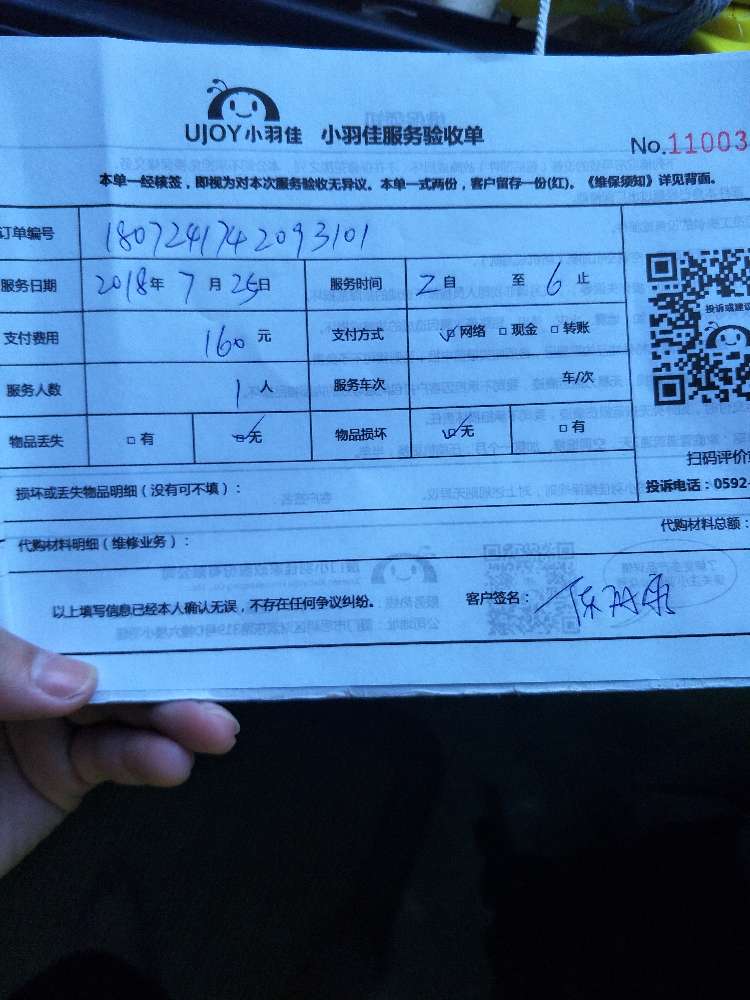 UJOY小羽佳 小羽佳服务验收单
No.11003
本单一经核签，即视为对本次服务验收无异议。本单一式两份，客户留存一份(红)。《维保须知》详见背面。
订单编号 1807241742093101
服务日期 2018年 7月 25日 服务时间 2自 至 6止
投诉或建议
支付费用 160元 支付方式 ☑网络 □现金 □转账
服务人数 1人 服务车次 车/次
物品丢失 □有 ☑无 物品损坏 ☑无 □有
扫码评价
损坏或丢失物品明细（没有可不填）：
投诉电话：0592-
代购材料明细（维修业务）：
代购材料总额：
以上填写信息已经本人确认无误，不存在任何争议纠纷。 客户签名：